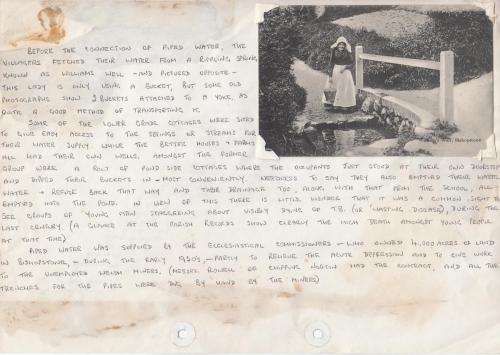 BEFORE THE CONNECTION OF PIPED WATER, THE
VILLAGERS FETCHED THEIR WATER FROM A RIPPLING SPRING,
KNOWN AS WILLIAMS WELL - AND PICTURED OPPOSITE -
THIS LADY IS ONLY USING A BUCKET, BUT SOME OLD
PHOTOGRAPHS SHOW 2 BUCKETS ATTACHED TO A YOKE, AS
QUITE A GOOD METHOD OF TRANSPORTING IT.
SOME OF THE LOWER GRADE COTTAGES WERE SITED
TO GIVE EASY ACCESS TO THE SPRINGS OR STREAMS FOR
THEIR WATER SUPPLY WHILE THE BETTER HOUSES + FARMS
ALL HAD THEIR OWN WELLS. AMONGST THE FORMER
GROUP WERE A ROW OF POND SIDE COTTAGES WHERE THE OCCUPANTS JUST STOOD AT THEIR OWN DOORSTEP
AND DIPPED THEIR BUCKETS IN - MOST CONVENIENTLY. NEEDLESS TO SAY THEY ALSO EMPTIED THEIR WASTE
WATER + REFUSE BACK THAT WAY AND THEIR DRAINAGE TOO, ALONG WITH THAT FROM THE SCHOOL, ALL
EMPTIED INTO THE POND. IN VIEW OF THIS THERE IS LITTLE WONDER THAT IT WAS A COMMON SIGHT TO
SEE GROUPS OF YOUNG MEN STAGGERING ABOUT VISIBLY DYING OF T.B. (OR 'WASTING DISEASE), DURING THE
LAST CENTURY. (A GLANCE AT THE PARISH RECORDS SHOW CLEARLY THE HIGH DEATH AMONGST YOUNG PEOPLE
AT THAT TIME)
PIPED WATER WAS SUPPLIED BY THE ECCLESIASTICAL COMMISSIONERS - WHO OWNED 4,000 ACRES OF LAND
IN BISHOPSTONE, - DURING THE EARLY 1930'S, - PARTLY TO RELIEVE THE ACUTE DEPRESSION AND TO GIVE WORK
TO THE UNEMPLOYED WELSH MINERS. (MESSRS ROWELL OF CHIPPING NORTON HAD THE CONTRACT, AND ALL THE
TRENCHES FOR THE PIPES WERE DUG BY HAND BY THE MINERS)
Well, Bishopstone